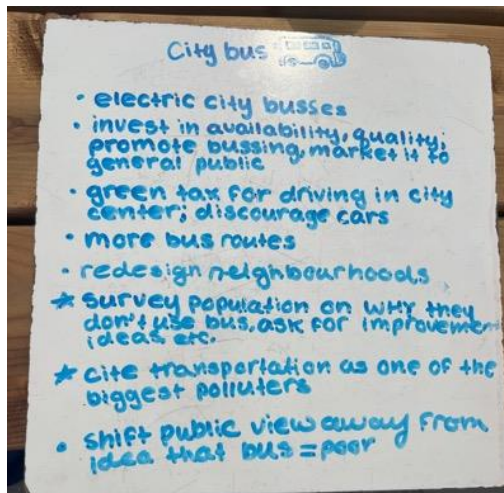 City bus
• electric city busses
• invest in availability, quality;
promote bussing, market it to
general public
• green tax for driving in city
center; discourage cars
• more bus routes
• redesign neighbourhoods
* survey population on WHY they
don't use bus, ask for improvemen
ideas etc.
* cite transportation as one of the
biggest polluters
• shift public view away from
idea that bus = poor